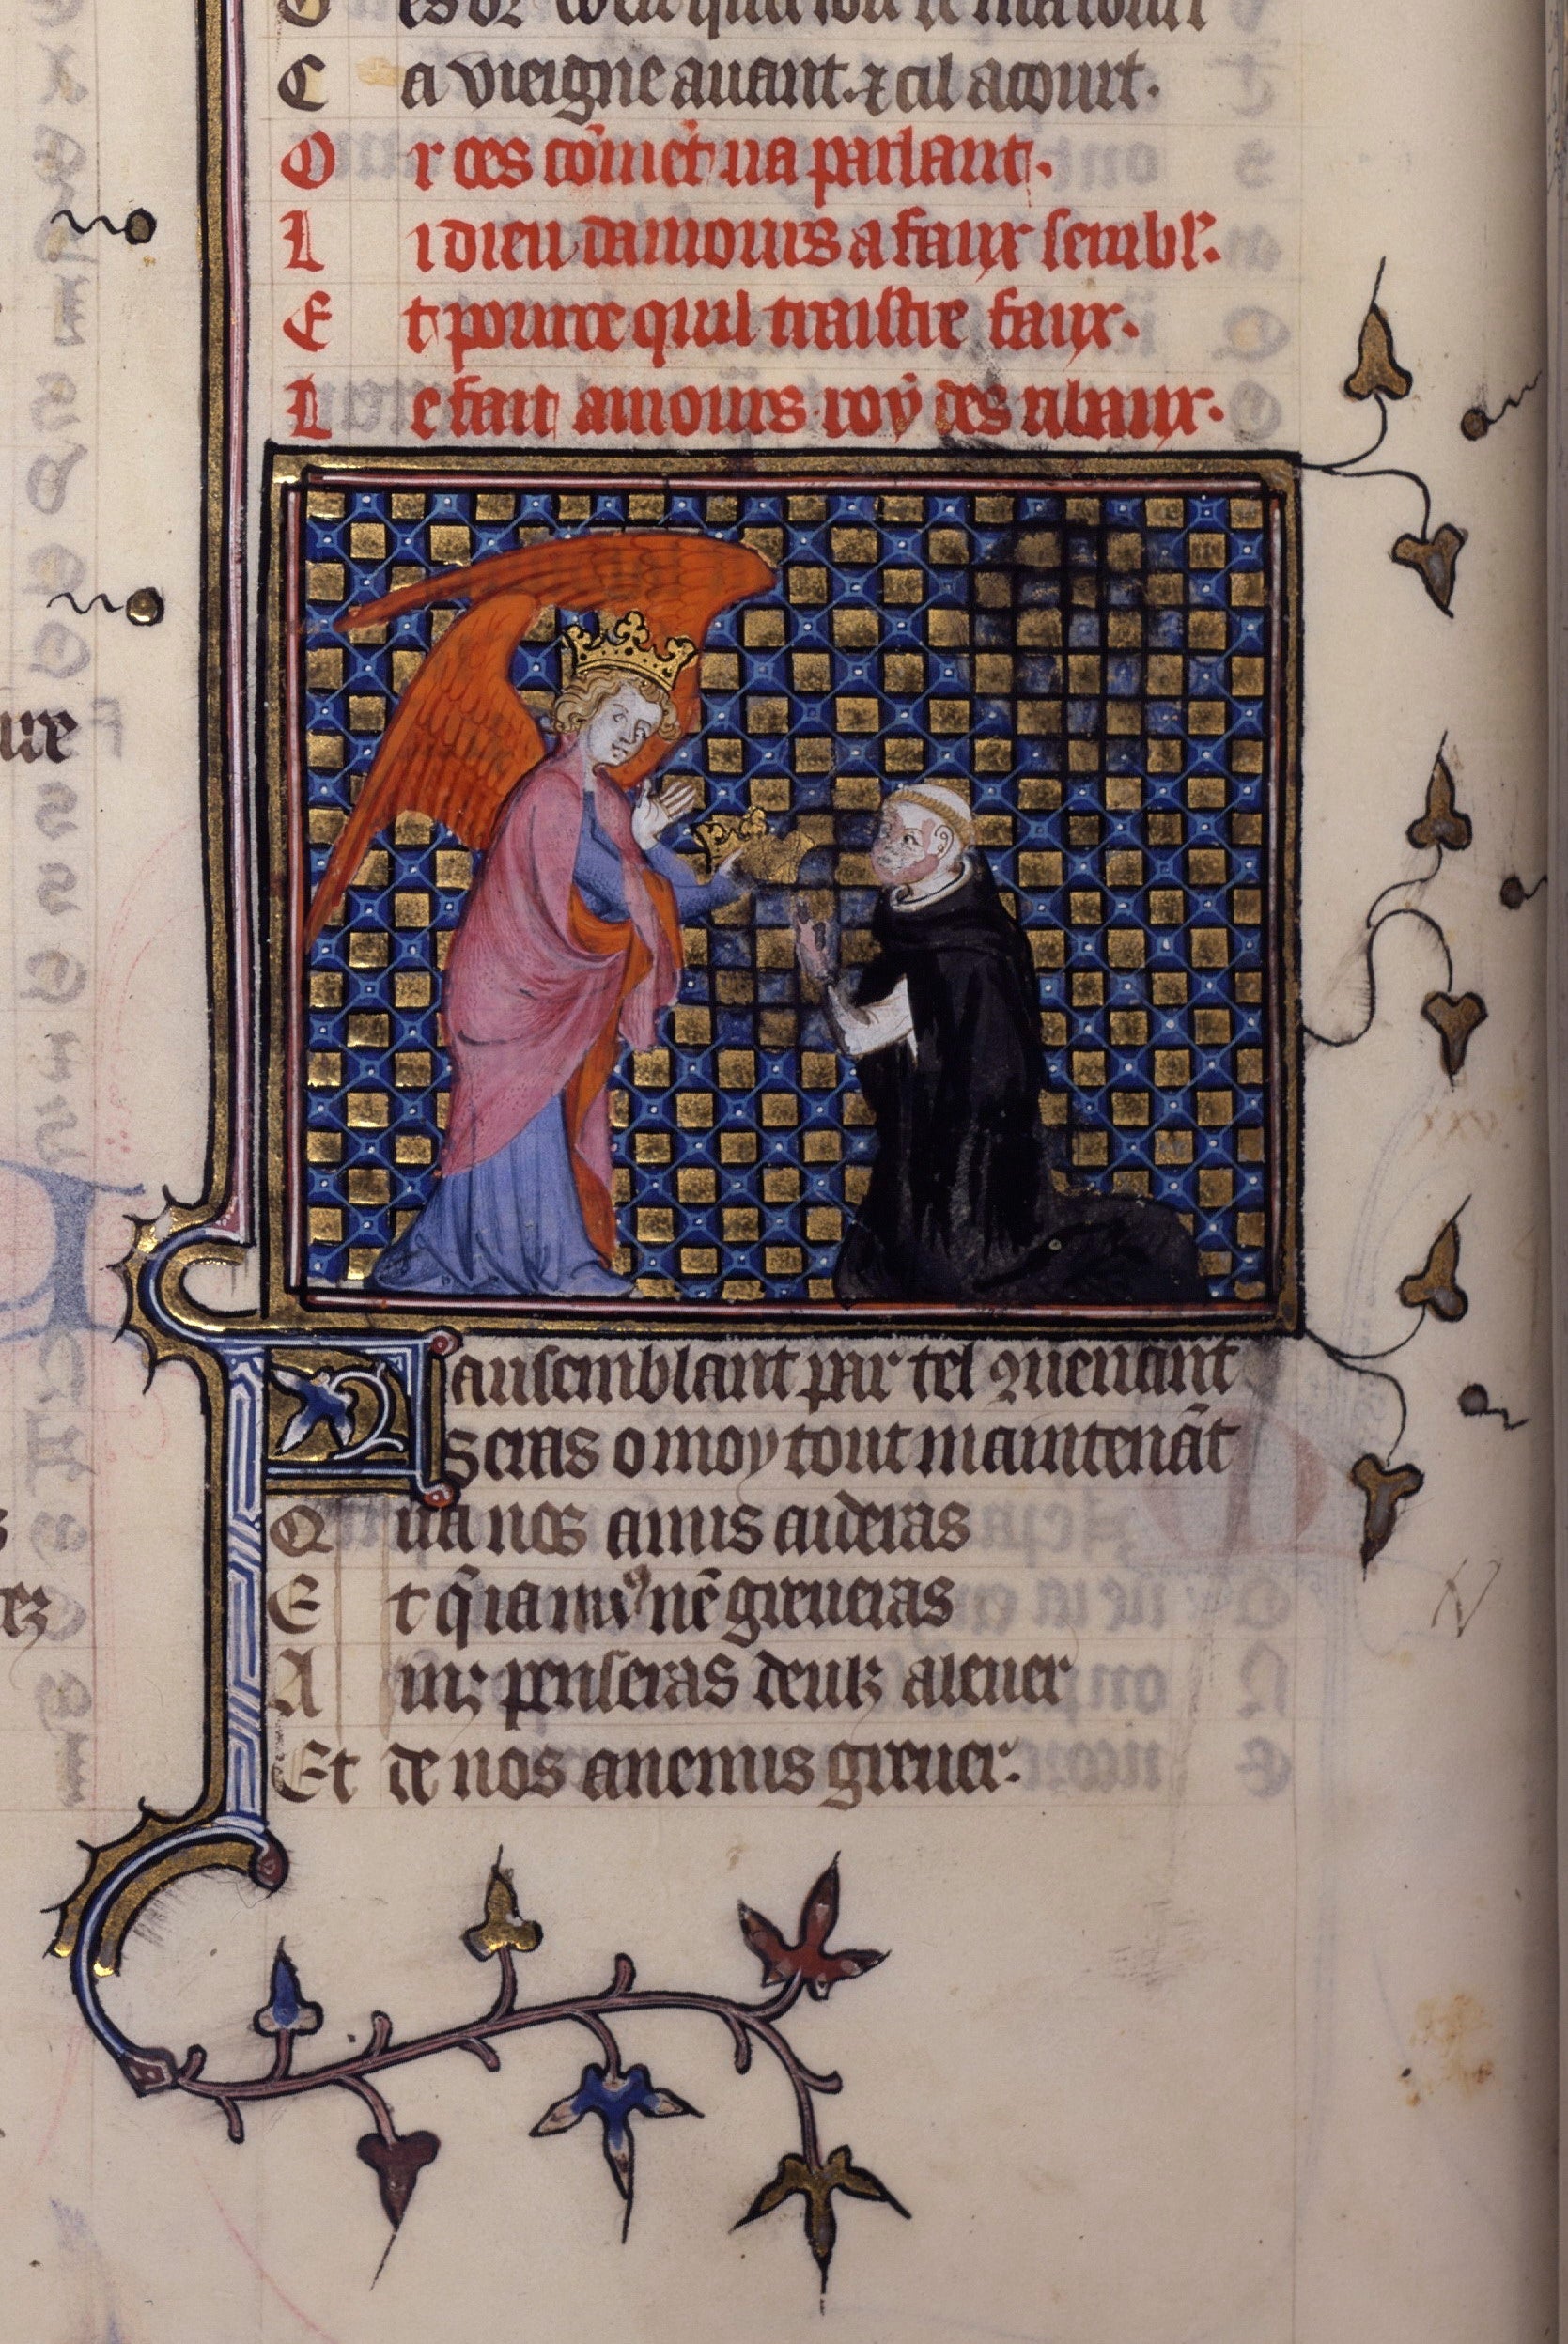 C a vieigne auant. ⁊ cil acourt.
O r ces cōmēt ua parlant.
L i dieu damours a faux sembl'.
E t pource quil traistre faux.
L e fait amours roy des ribaux.
Fausemblant par tel ꝯuenant
Seras o moy tout maintenāt
Q ua nos amis aideras
E t q̄ ia nul9 nē greueras
A inz penseras deulz aleuer
Et de nos anemis greuer.